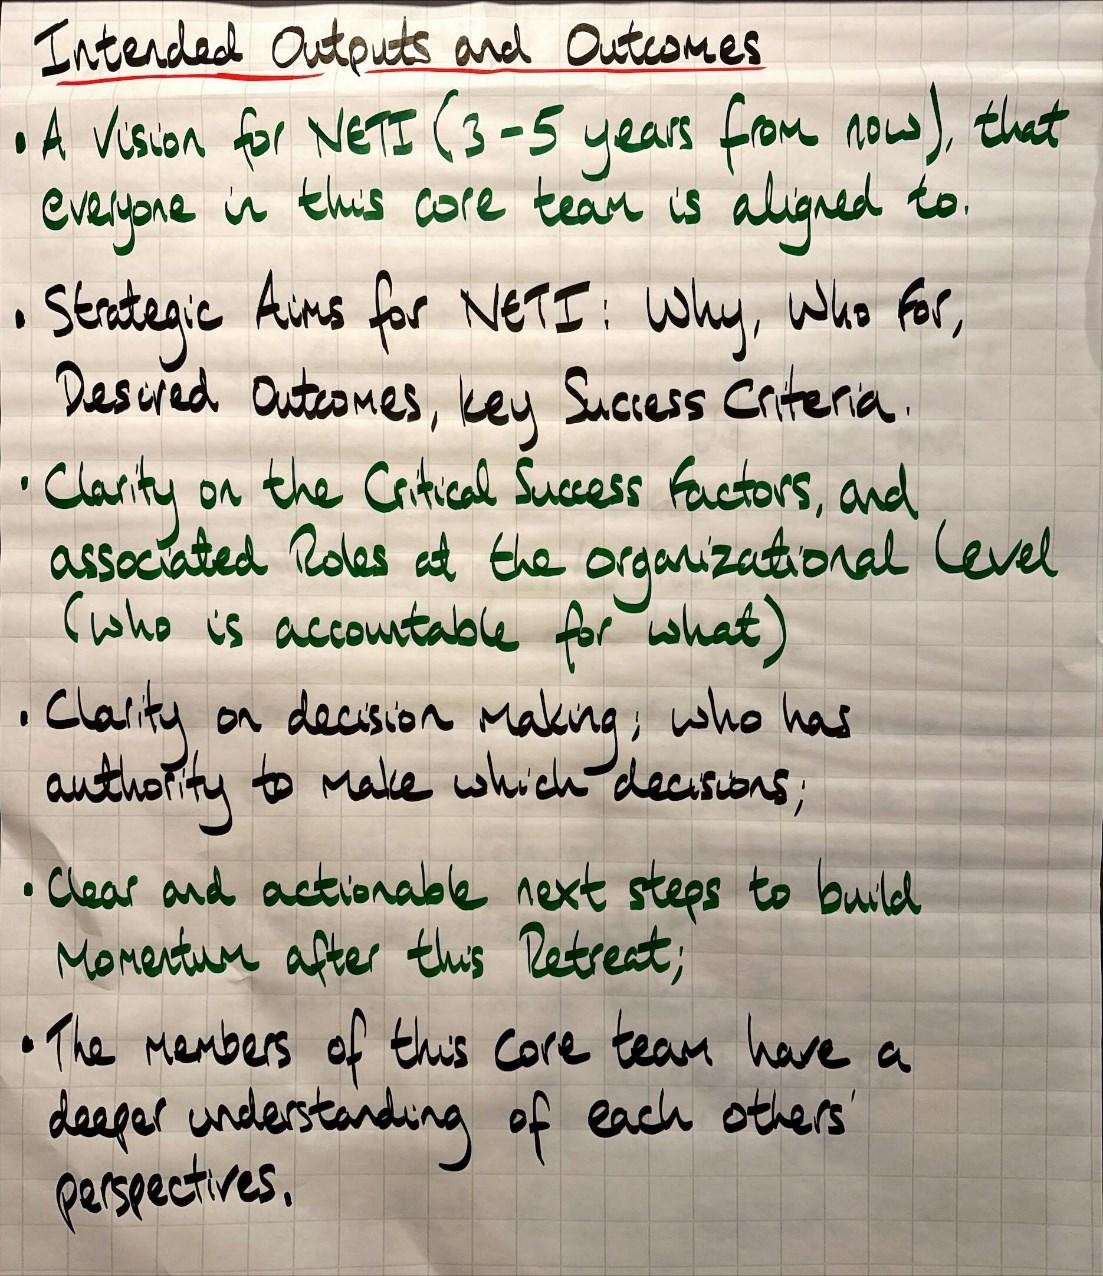 Intended Outputs and Outcomes
• A Vision for NETI (3-5 years from now), that
everyone in this core team is aligned to.
• Strategic Aims for NETI: Why, Who For,
Desired Outcomes, Key Success Criteria.
• Clarity on the Critical Success Factors, and
associated Roles at the organizational Level
(who is accountable for what)
• Clarity on decision making; who has
authority to make which decisions;
• Clear and actionable next steps to build
Momentum after this Retreat;
• The members of this core team have a
deeper understanding of each others'
perspectives.